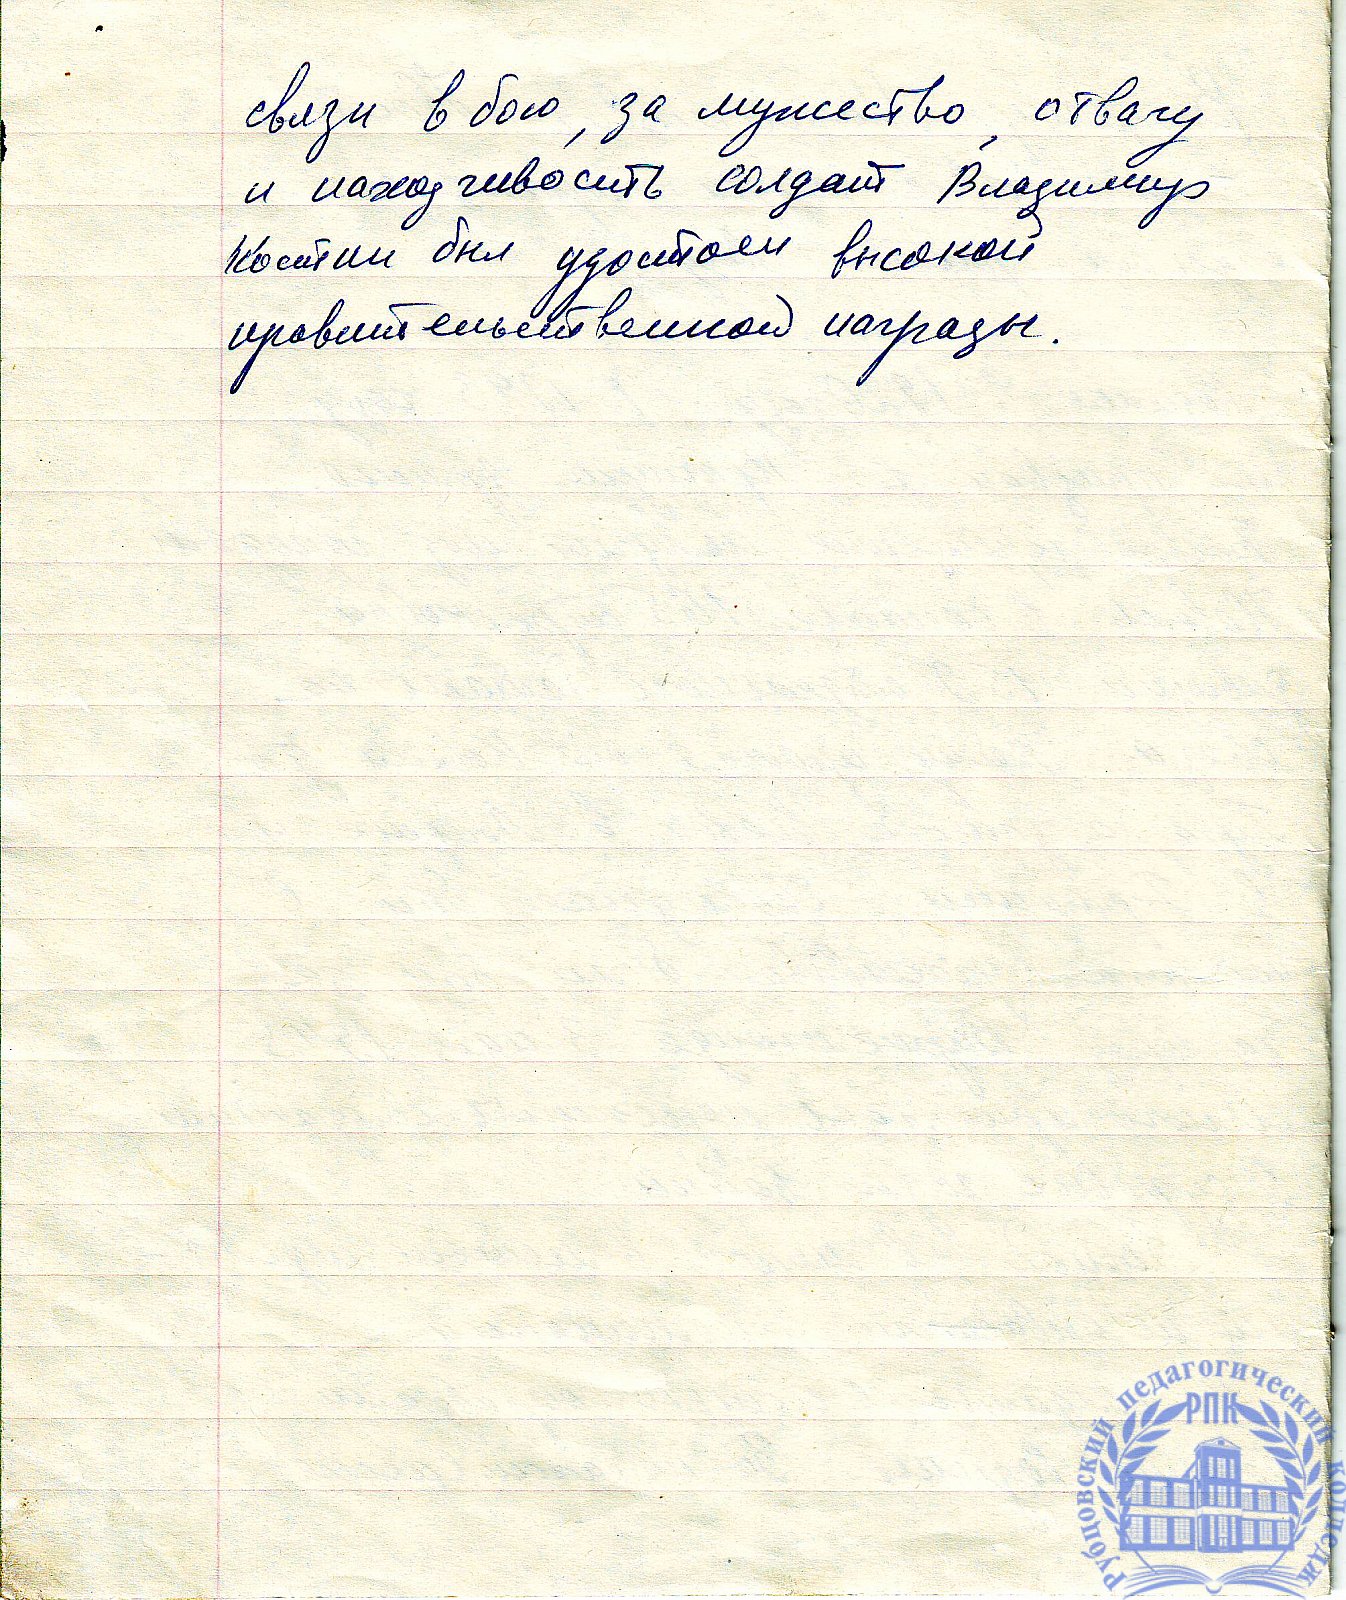 связи в бою, за мужество, отвагу
и находчивость солдат Владимир
Костин был удостоен высокой
правительственной награды.
Рубцовский педагогический колледж
РПК